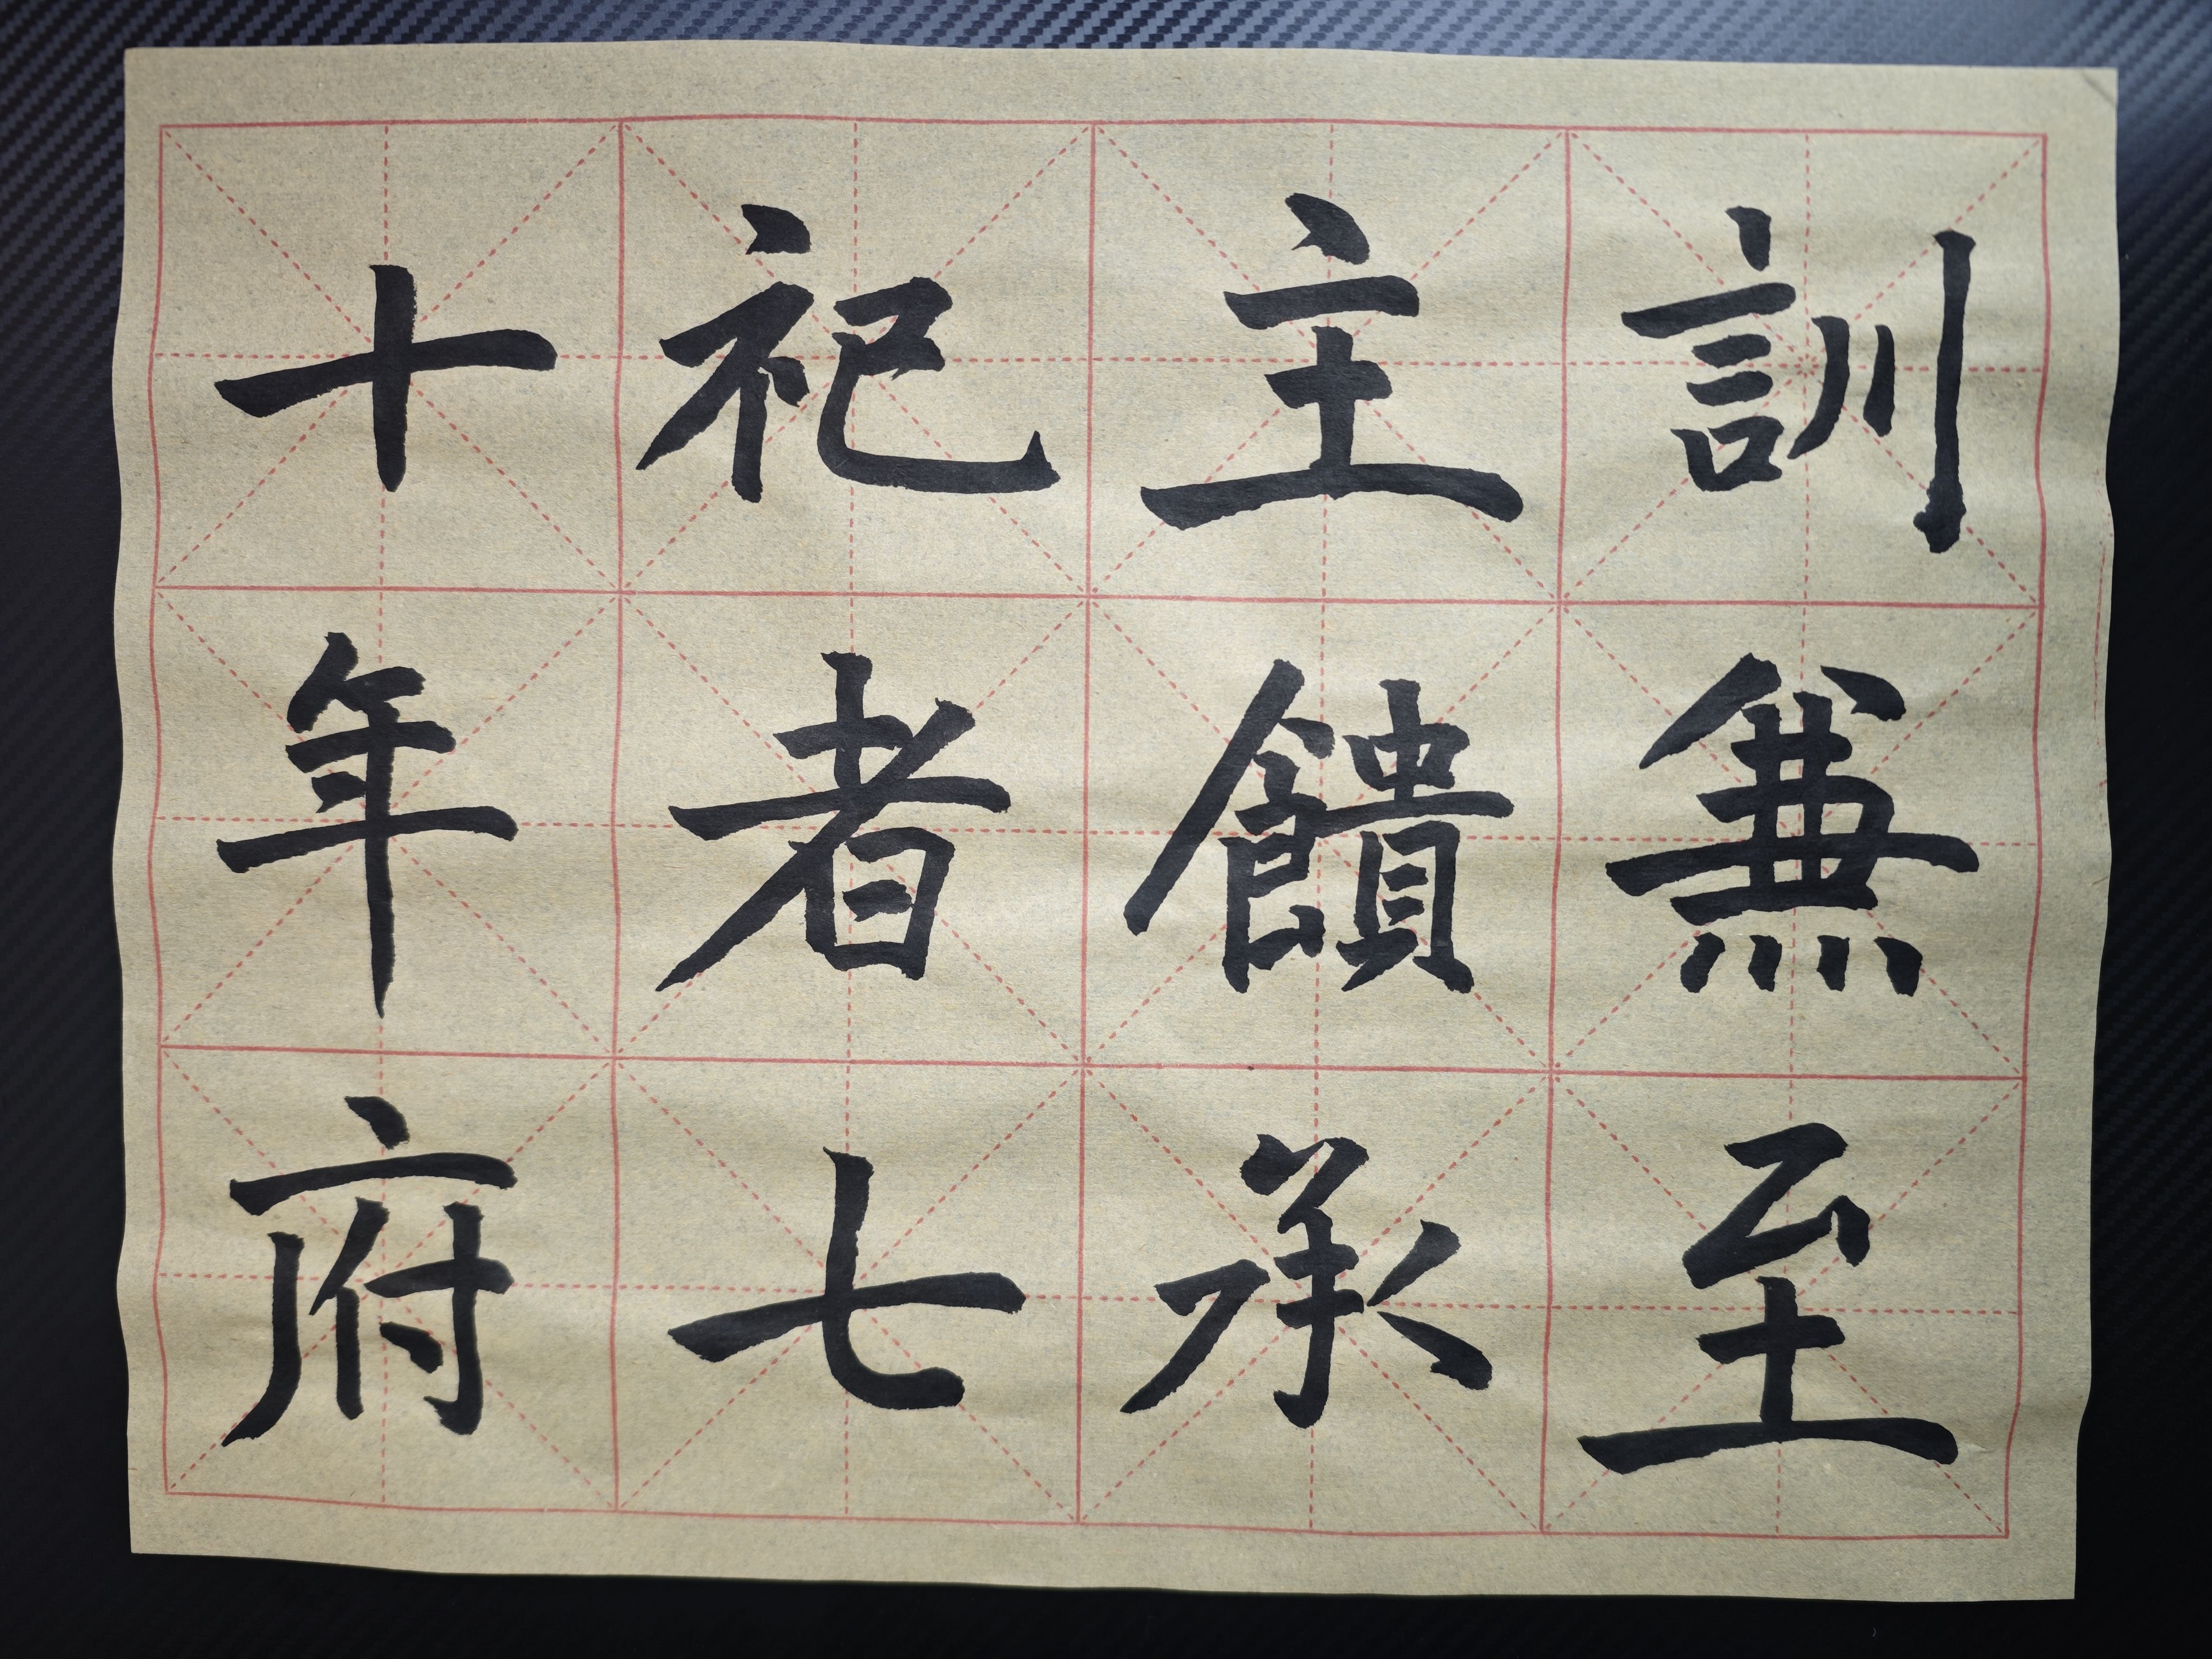 訓兼至
主饋承
祀者七
十年府